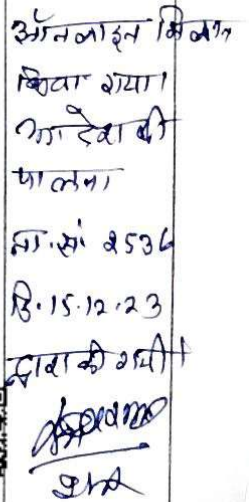 ऑनलाइन मिलान
किया गया।
आदेश की
पालना
ना.सं 2536
दि.15.12.23
द्वारा की गयी।